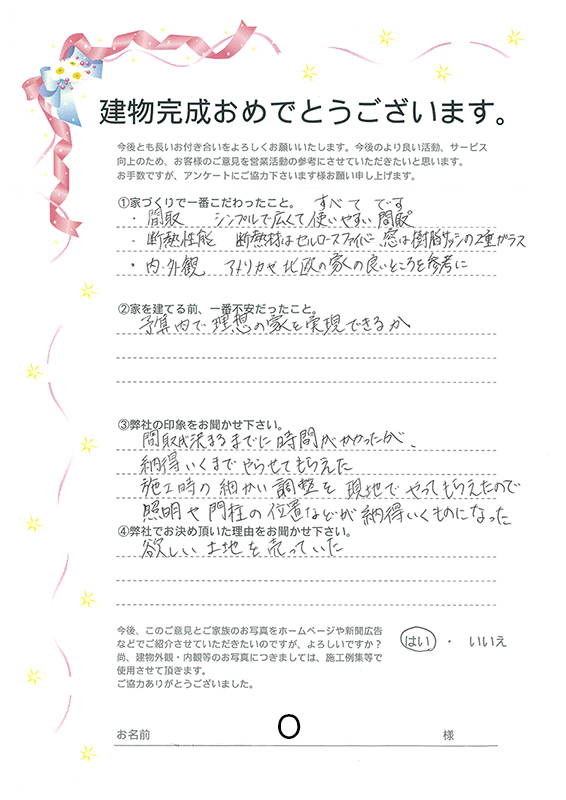 建物完成おめでとうございます。
今後とも長いお付き合いをよろしくお願いいたします。今後のより良い活動、サービス
向上のため、お客様のご意見を営業活動の参考にさせていただきたいと思います。
お手数ですが、アンケートにご協力下さいます様お願い申し上げます。
①家づくりで一番こだわったこと。 すべて です
・間取 シンプルで広くて使いやすい間取
・断熱性能 断熱材はセルロースファイバー 窓は樹脂サッシの2重ガラス
・内・外観 アメリカや北欧の家の良いところを参考に
②家を建てる前、一番不安だったこと。
予算内で理想の家を実現できるか
③弊社の印象をお聞かせ下さい。
間取が決まるまでに時間がかかったが、
納得いくまでやらせてもらえた
施工時の細かい調整を現地でやってもらえたので
照明や門柱の位置などが納得いくものになった
④弊社でお決め頂いた理由をお聞かせ下さい。
欲しい土地を売っていた
今後、このご意見とご家族のお写真をホームページや新聞広告
などでご紹介させていただきたいのですが、よろしいですか？
はい ・ いいえ
尚、建物外観・内観等のお写真につきましては、施工例集等で
使用させて頂きます。
ご協力ありがとうございました。
お名前 O 様